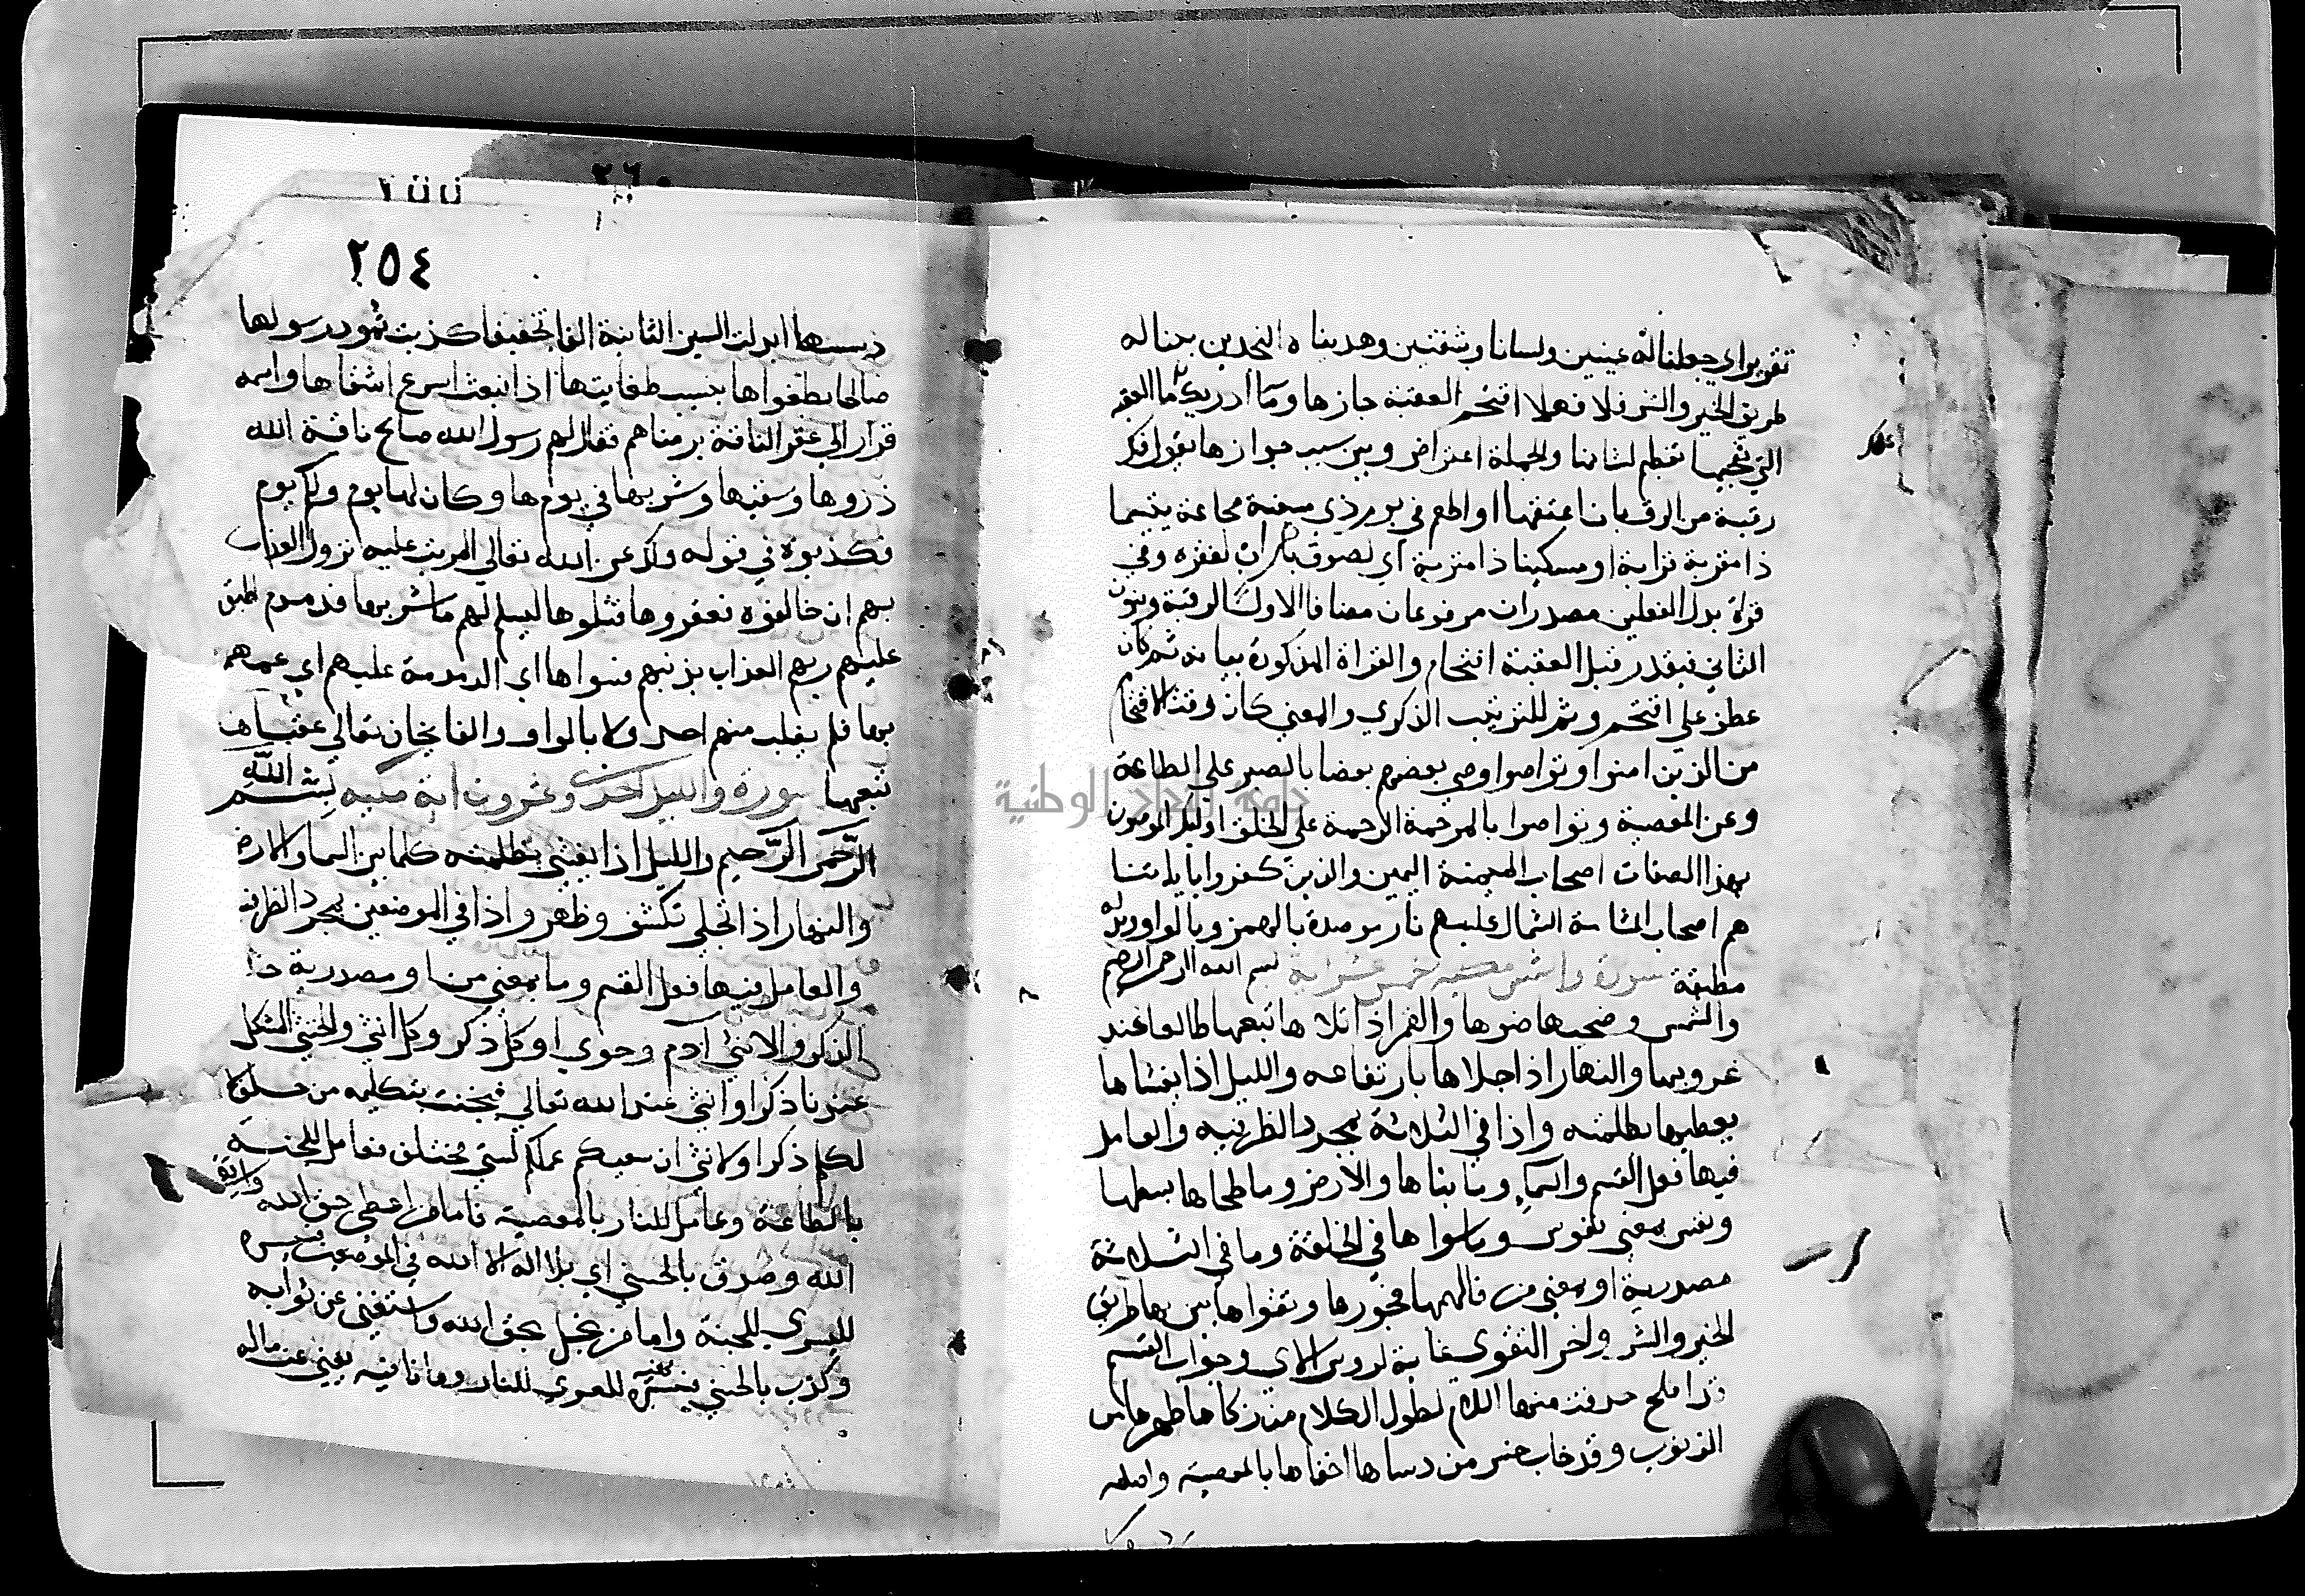 تقرير اي جعلنا له عينين ولسانا وشفتين وهديناه النجدين بينا له
طريق الخير والشر فلا فهلا اقتحم العقبة جازها وما ادريك ما العقبة
التي يقتحمها تعظيم لشانها والجملة اعتراض وبين سبب جوازها بقوله فك
رقبة من الرق بان اعتقها او اطعم في يوم ذي مسغبة مجاعة يتيما
ذا مقربة قرابة او مسكينا ذا متربة اي لصوق بالتراب لفقره وفي
قراة بدل الفعلين مصدران مرفوعان مضاف الاول لرقبة وينون
الثاني فيقدر قبل العقبة اقتحام والقراة المذكورة بيانه ثم كان
عطف علي اقتحم وثم للترتيب الذكري والمعني كان وقت الاقتحام
من الذين امنوا وتواصوا اوصي بعضهم بعضا بالصبر علي الطاعة
وعن المعصية وتواصوا بالمرحمة الرحمة علي الخلق اوليك الموصوفون
بهذا الصفات اصحاب الميمنة اليمين والذين كفروا باياتنا
هم اصحاب المشامة الشمال عليهم نار موصدة بالهمز وبالواو بدله
مطبقة سورة والشمس مكية خمس عشر اية بسم الله الرحمن الرحيم
والشمس وضحيها ضوها والقمر اذا تلاها تبعها طالعا عند
غروبها والنهار اذا جلاها بارتفاعه والليل اذا يغشاها
يغطيها بظلمته واذا في الثلاثة لمجرد الظرفيه والعامل
فيها فعل القسم والسماء وما بناها والارض وما طحاها بسطها
ونفس بمعني نفوس وما سواها في الخلقة وما في الثلاثة
مصدرية او بمعني من فالهمها فجورها وتقواها بين لها طريق
الخير والشر واخر التقوي رعاية لروس الاي وجواب القسم
قد افلح حذفت منها اللام لطول الكلام من زكاها طهرها من
الذنوب وقد خاب خسر من دساها اخفاها بالمعصية واصله
٢٦٠
٢٥٤
دسسها ابدلت السين الثانية الفا تخفيفا كذبت ثمود رسولها
صالحا بطغواها بسبب طغيانها اذ انبعث اسرع اشقاها واسمه
قدار الي عقر الناقة برضاهم فقال لهم رسول الله صالح ناقة الله
ذروها وسقيها وشربها في يومها وكان لها يوم ولهم يوم
فكذبوه في قوله ذلك عن الله تعالي المرتب عليه نزول العذاب
بهم ان خالفوه فعقروها قتلوها ليسلم لهم ما شربها فدمدم اطبق
عليهم ربهم العذاب بذنبهم فسواها اي الدمدمة عليهم اي عمهم
بها فلم يفلت منهم احد ولا بالواو والفا يخاف تعالي عقباها
تبعها سورة والليل احدي وعشرون اية مكيه بسم الله
الرحمن الرحيم والليل اذا يغشي بظلمته كلما بين السما والارض
والنهار اذا تجلي تكشف وظهر واذا في الموضعين لمجرد الظرفية
والعامل فيها فعل القسم وما بمعني من او مصدرية خلق
الذكر والانثي ادم وحوي او كل ذكر وكل انثي والخنثي المشكل
عندنا ذكر او انثي عند الله تعالي فيحنث بتكليمه من حلف لا
يكلم ذكرا ولا انثي ان سعيكم عملكم لشتي مختلف فعامل للجنة
بالطاعة وعامل للنار بالمعصية فاما من اعطي حق الله واتقي
الله وصدق بالحسني اي بلا اله الا الله في الموضعين فسنيسره
لليسري للجنة واما من بخل بحق الله واستغني عن ثوابه
وكذب بالحسني فسنيسره نهيه للعسري للنار وما نافيه يغني عنه ماله